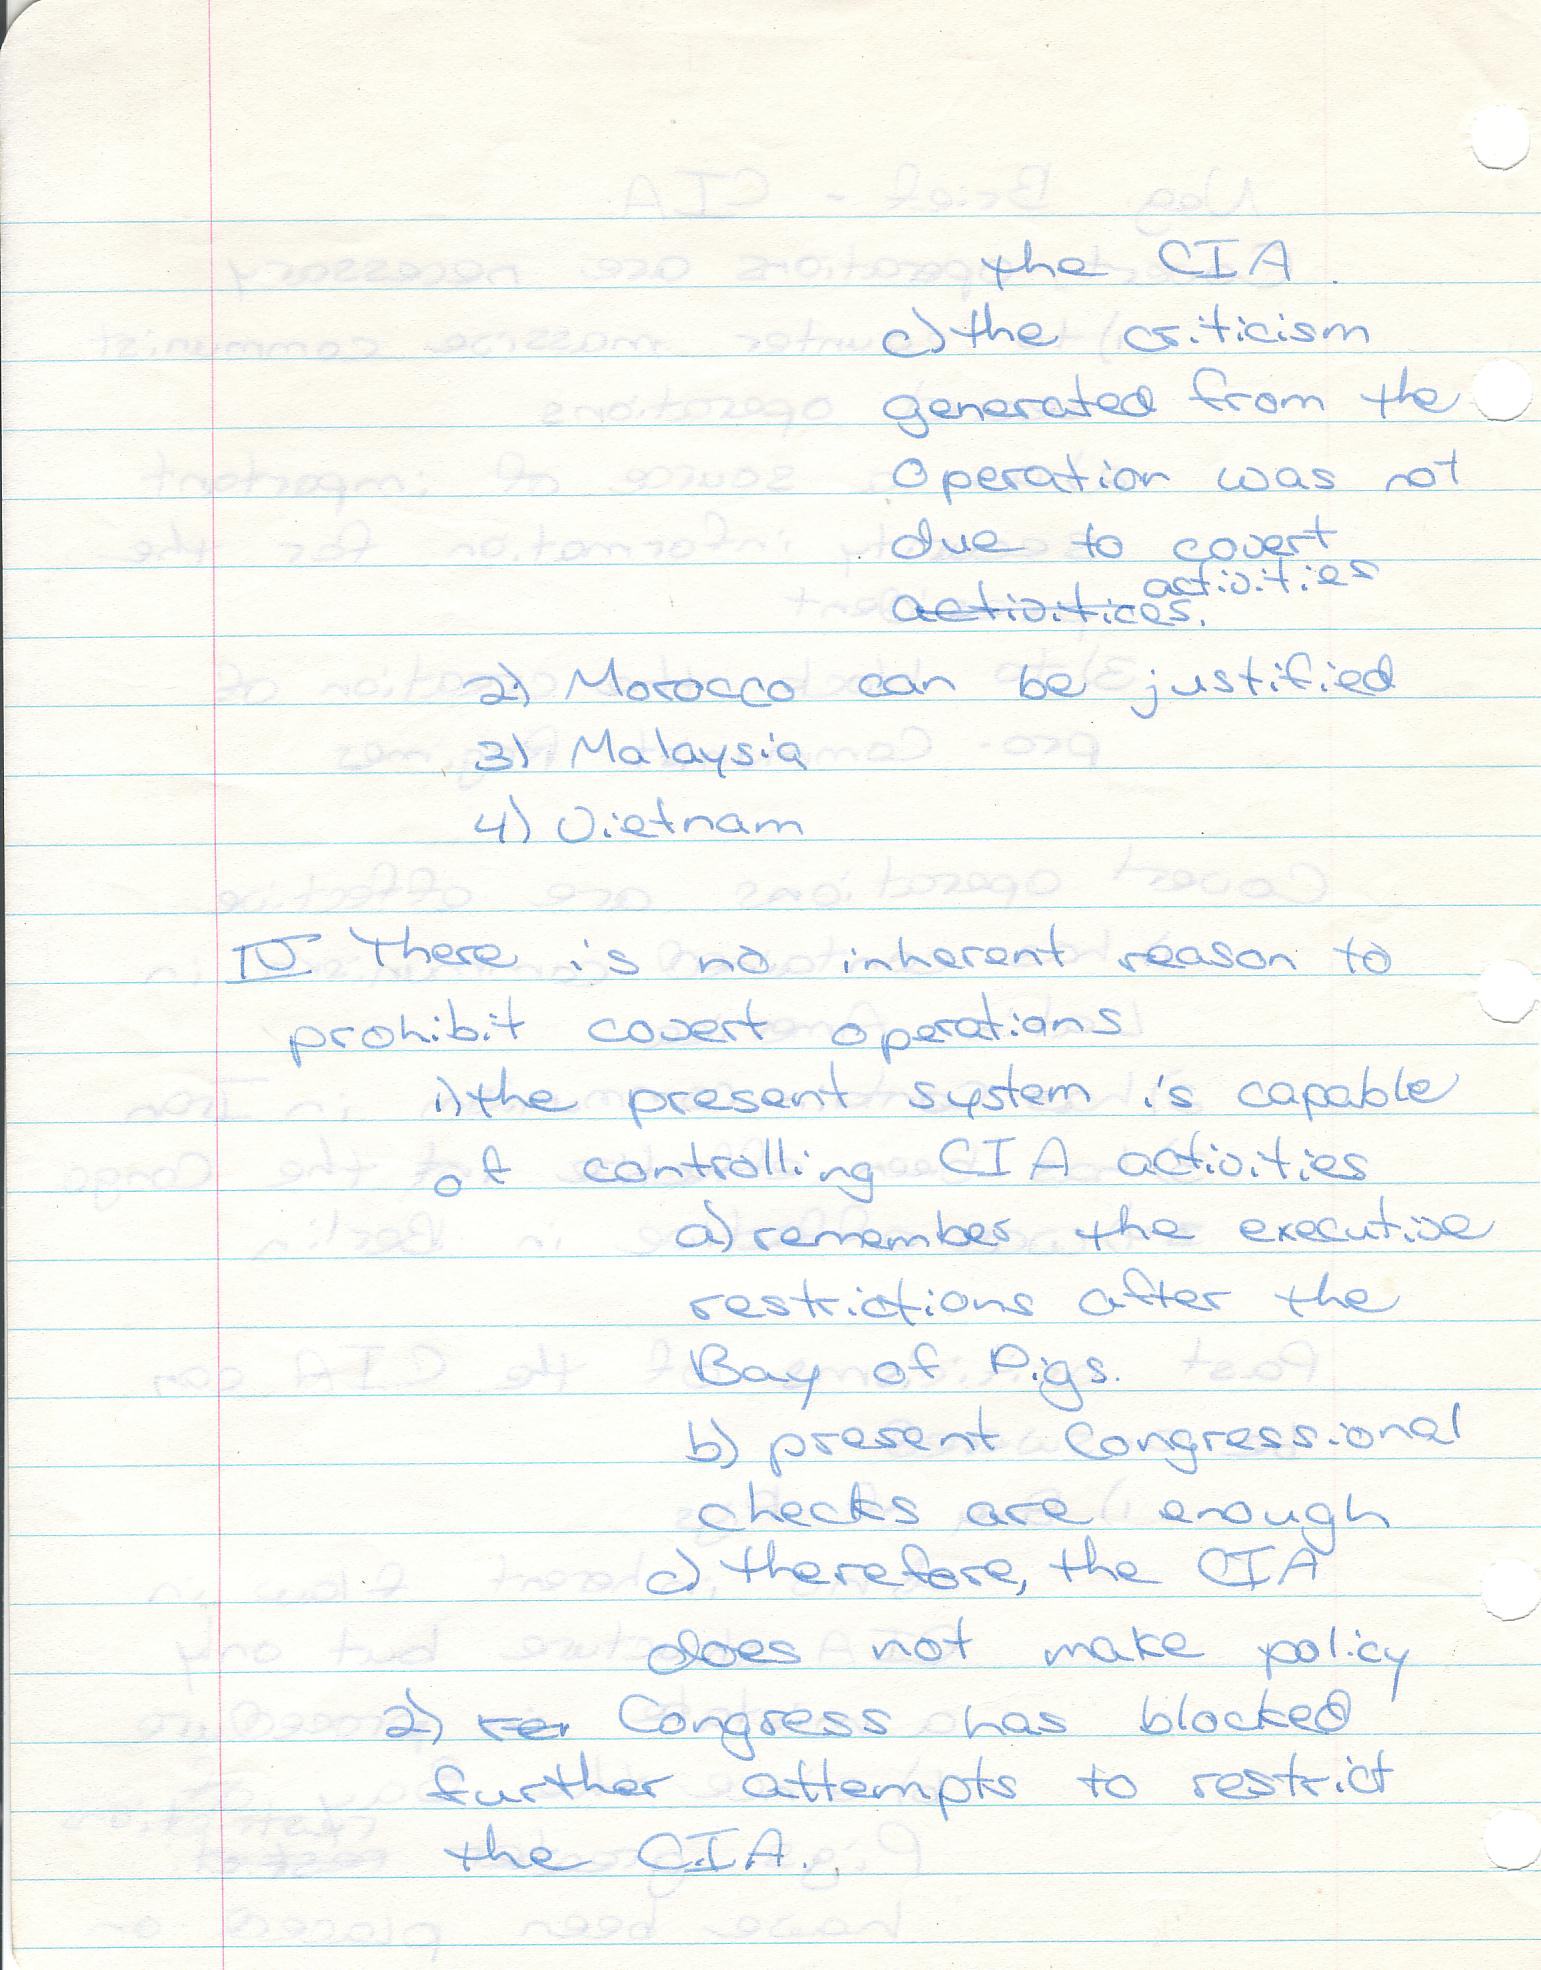 the CIA.
c) the criticism
generated from the
operation was not
due to covert
activities
activitices.
2) Morocco can be justified
3) Malaysia
4) Vietnam
IV There is no inherent reason to
prohibit covert operations
1) the present system is capable
of controlling CIA activities
a) remember the executive
restrictions after the
Bay of Pigs.
b) present Congressional
checks are enough
c) therefore, the CIA
does not make policy
2) Congress has blocked
further attempts to restrict
the CIA.